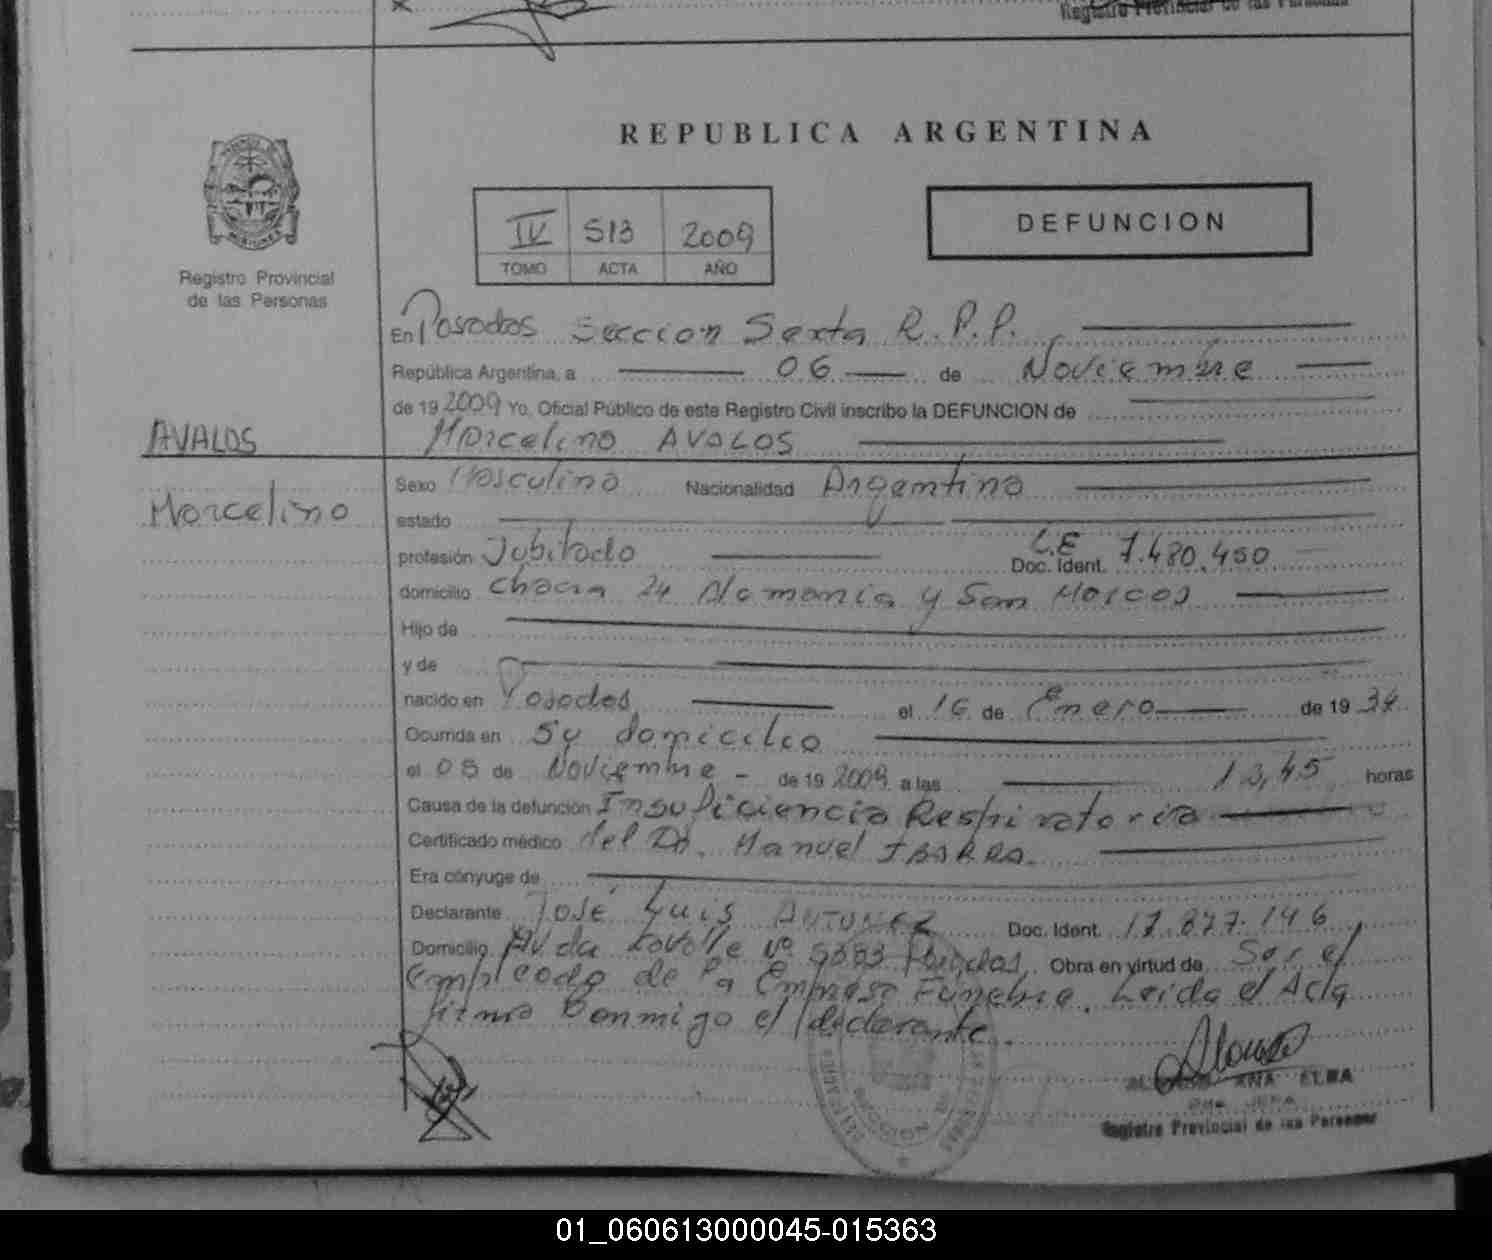 Registro Provincial de las Personas
REPUBLICA ARGENTINA
IV 513 2009
TOMO ACTA AÑO
DEFUNCION
Registro Provincial
de las Personas
En Posadas Seccion Sexta R.P.P.
República Argentina, a 06 de Noviembre
de 19 2009 Yo, Oficial Público de este Registro Civil inscribo la DEFUNCION de
AVALOS
Marcelino AVALOS
Marcelino
Sexo Masculino Nacionalidad Argentina
estado
profesión Jubilado Doc. Ident. L.E 7.480.450
domicilio Chacra 24 Alemania y San Marcos
Hijo de
y de
nacido en Posadas el 16 de Enero de 19 34
Ocurrida en Su domicilio
el 05 de Noviembre - de 19 2009 a las 13,45 horas
Causa de la defunción Insuficiencia Respiratoria
Certificado médico del Dr. Manuel IBARRA.
Era cónyuge de
Declarante José Luis ANTUNEZ Doc. Ident. 17.877.146
Domicilio Avda Lavalle Nº Posadas Obra en virtud de Ser el
Empleado de la Empresa Funebre. Leida el Acta
firma Conmigo el declarante.
ANA ELBA
Registro Provincial de las Personas
01_060613000045-015363